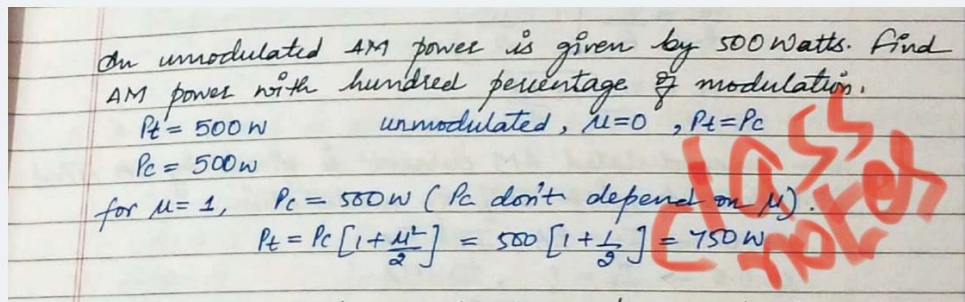 An unmodulated AM power is given by 500 Watts. Find
AM power with hundred percentage of modulation.
Pt = 500 W unmodulated, μ=0, Pt=Pc
Pc = 500w
for μ= 1, Pc = 500w ( Pc don't depend on μ).
Pt = Pc [1+μ²/2] = 500 [1+1/2] = 750 W
class
notes